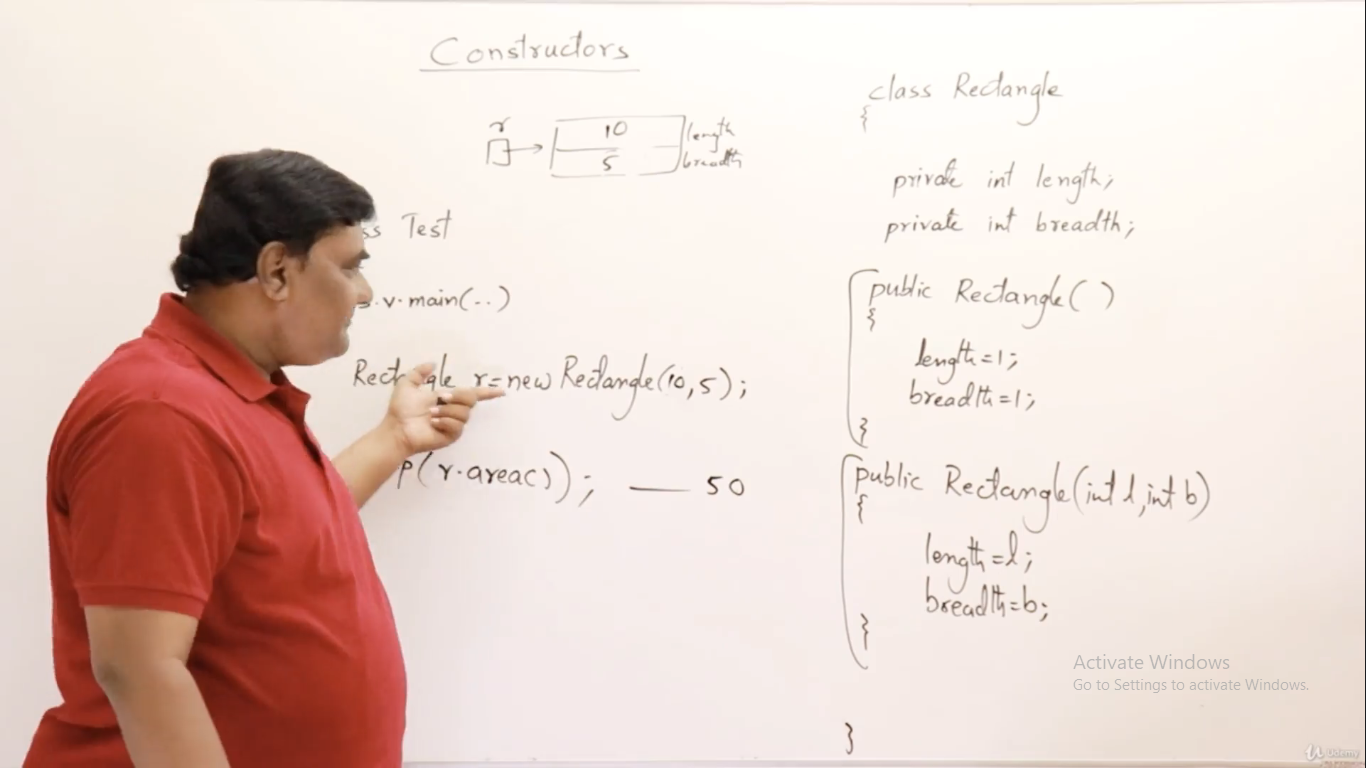 Constructors
r
10
length
5
breadth
ss Test
s.v.main(..)
Rectangle r=new Rectangle(10,5);
p(r.area()); — 50
class Rectangle
{
private int length;
private int breadth;
public Rectangle( )
{
length=1;
breadth=1;
}
public Rectangle(int l,int b)
{
length=l;
breadth=b;
}
}
Activate Windows
Go to Settings to activate Windows.
Udemy